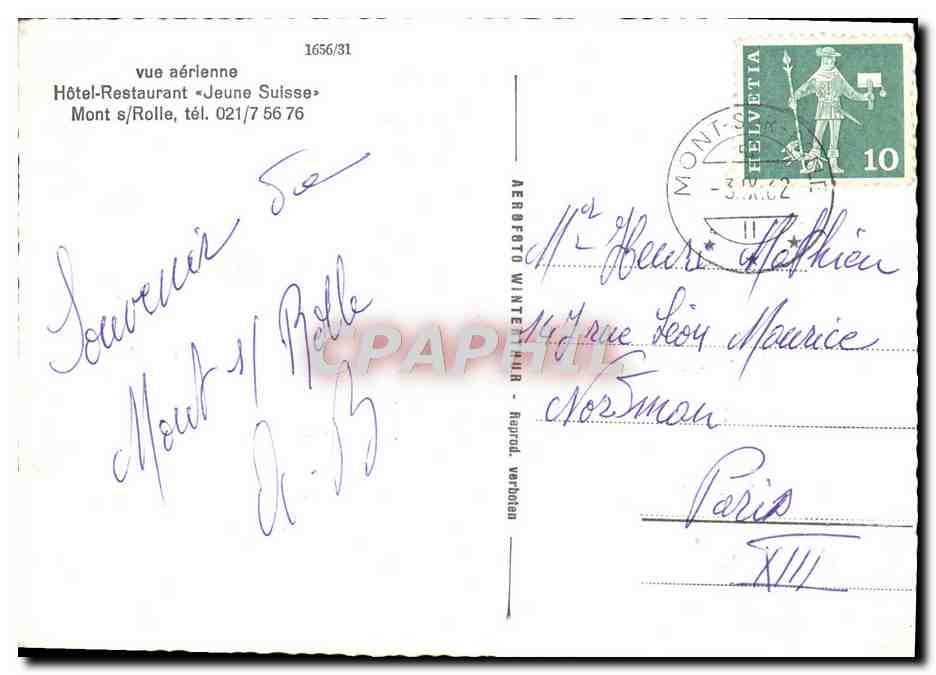 1656/31
vue aérienne
Hôtel-Restaurant «Jeune Suisse»
Mont s/Rolle, tél. 021/7 56 76
Souvenir de
Mont s/ Rolle
AEROFOTO WINTERTHUR - Reprod. verboten
HELVETIA
10
MONT-SUR-ROLLE
II
Mr Henri Mathieu
147 rue Léon Maurice
Nordman
Paris
XIII
CPAPHIL